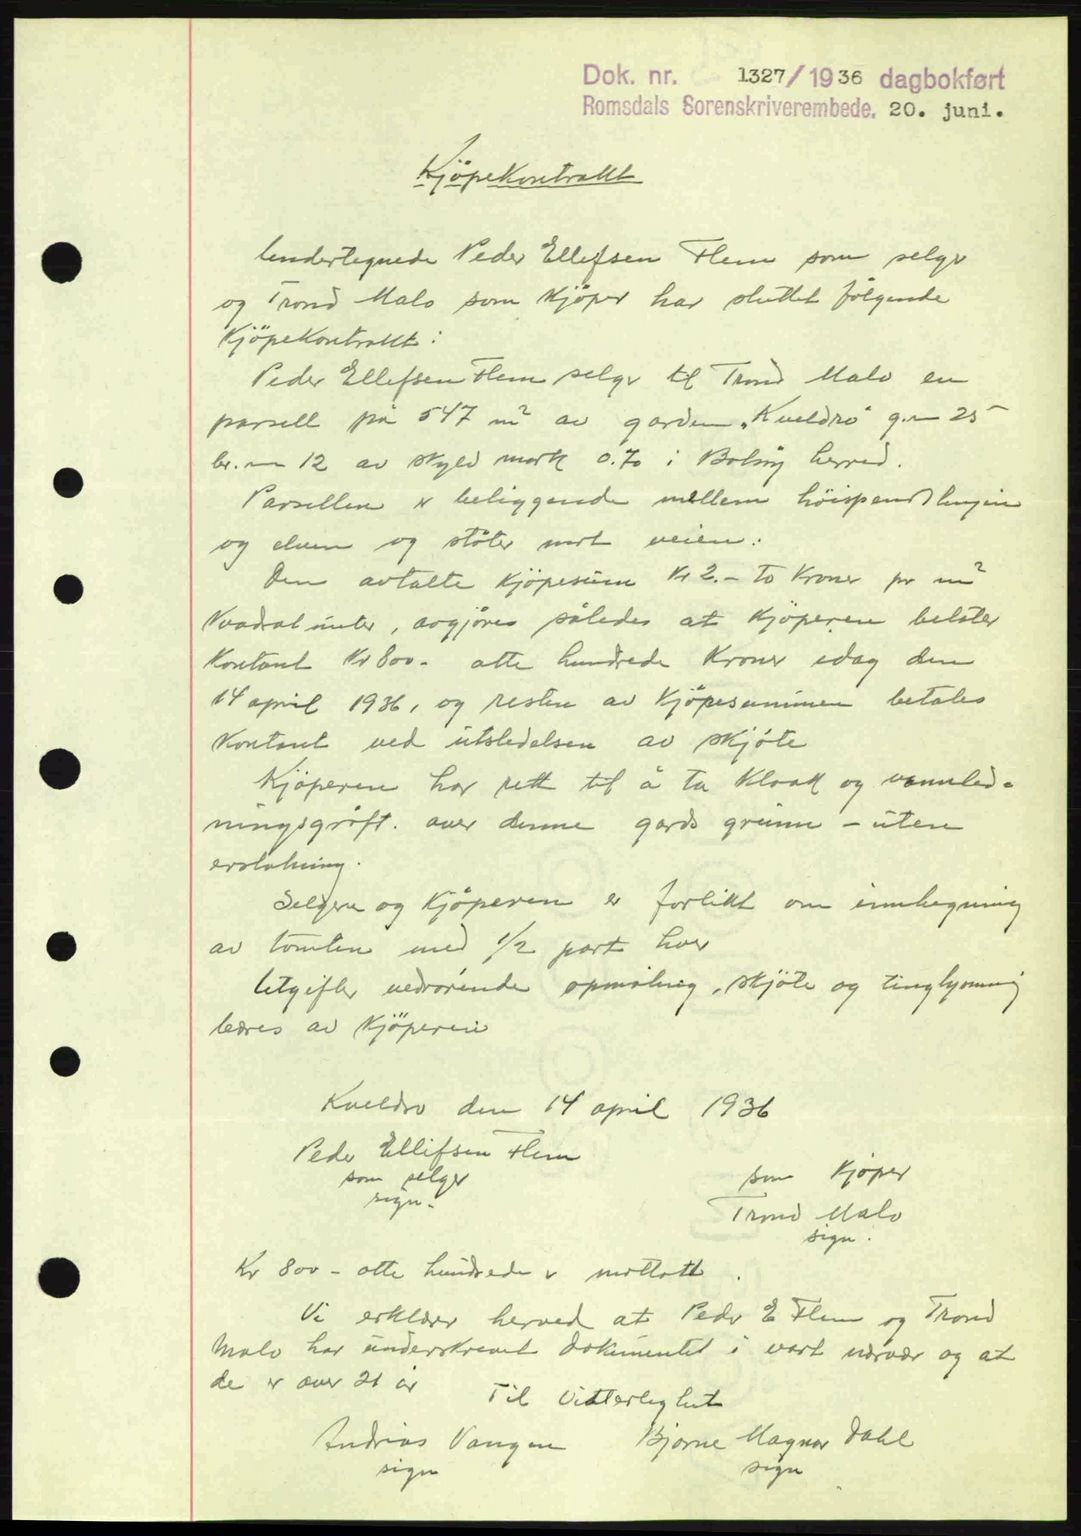 Dok. nr. 1327/1936 dagbokført
Romsdals Sorenskriverembede. 20. juni.
Kjöpekontrakt
Undertegnede Peder Ellefsen Flem som selger
og Trond Malo som kjöper har sluttet fölgende
kjöpekontrakt:
Peder Ellefsen Flem selger til Trond Malo en
parsell på 547 m² av garden „Kveldro" g.nr 25
br.nr 12 av skyld mark 0.70 i Bolsöy herred.
Parsellen er beliggende mellem höispendtlinjen
og elven og stöter mot veien.
Den avtalte kjöpesum Kr 2.- to kroner pr m²
kvadratmeter, avgjöres således at kjöperen betaler
kontant Kr 800- otte hundrede kroner idag den
14 april 1936, og resten av kjöpesummen betales
kontant ved utstedelsen av skjöte
Kjöperen har rett til å ta kloakk og vannled-
ningsgröft. over denne gards grunn - uten
erstatning.
Selgeren og kjöperen er forlikt om innhegning
av tomten med 1/2 part hver
Utgifter vedrörende opmåling, skjöte og tinglysning
bæres av kjöperen
Kveldro den 14 april 1936
Peder Ellifsen Flem
som selger
sign.
som kjöper
Trond Malo
sign.
Kr 800- otte hundrede er mottatt.
Vi erklærer herved at Peder E Flem og Trond
Malo har underskrevet dokumentet i vort nærvær og at
de er over 21 år
Til vitterlighet
Andreas Vangen Bjarne Magnar Dahl
sign sign